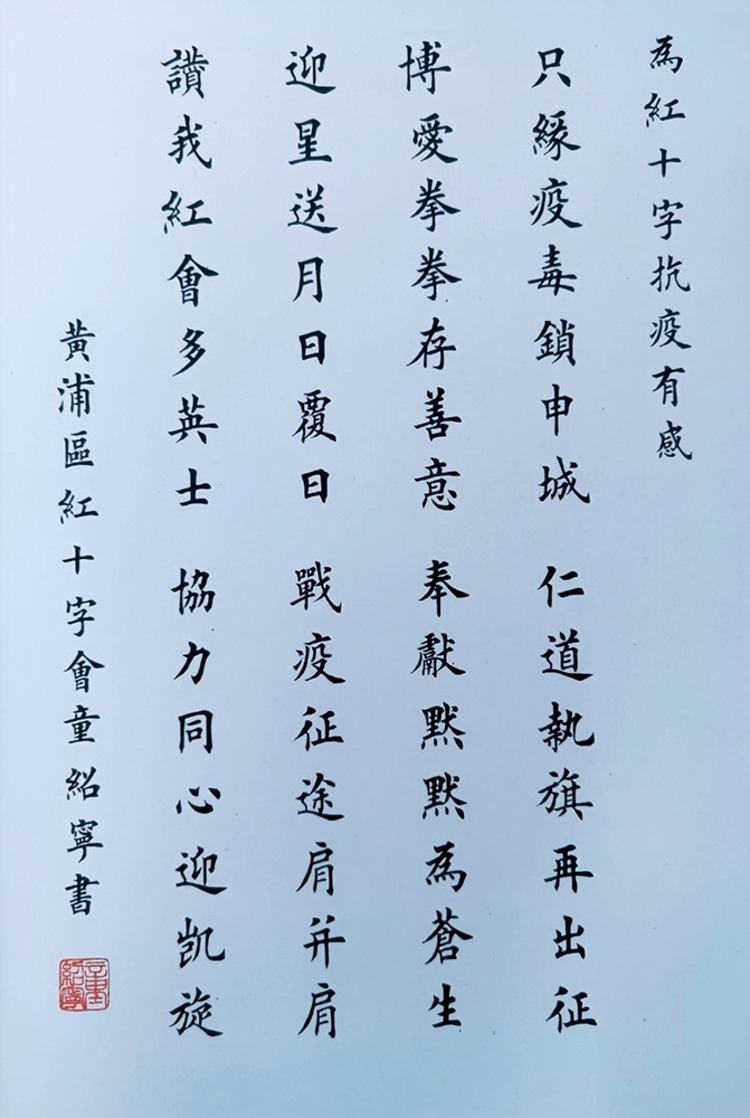 為紅十字抗疫有感
只緣疫毒鎖申城 仁道執旗再出征
博愛拳拳存善意 奉獻默默為蒼生
迎星送月日覆日 戰疫征途肩并肩
讚我紅會多英士 協力同心迎凱旋
黃浦區紅十字會童紹寧書
童紹寧